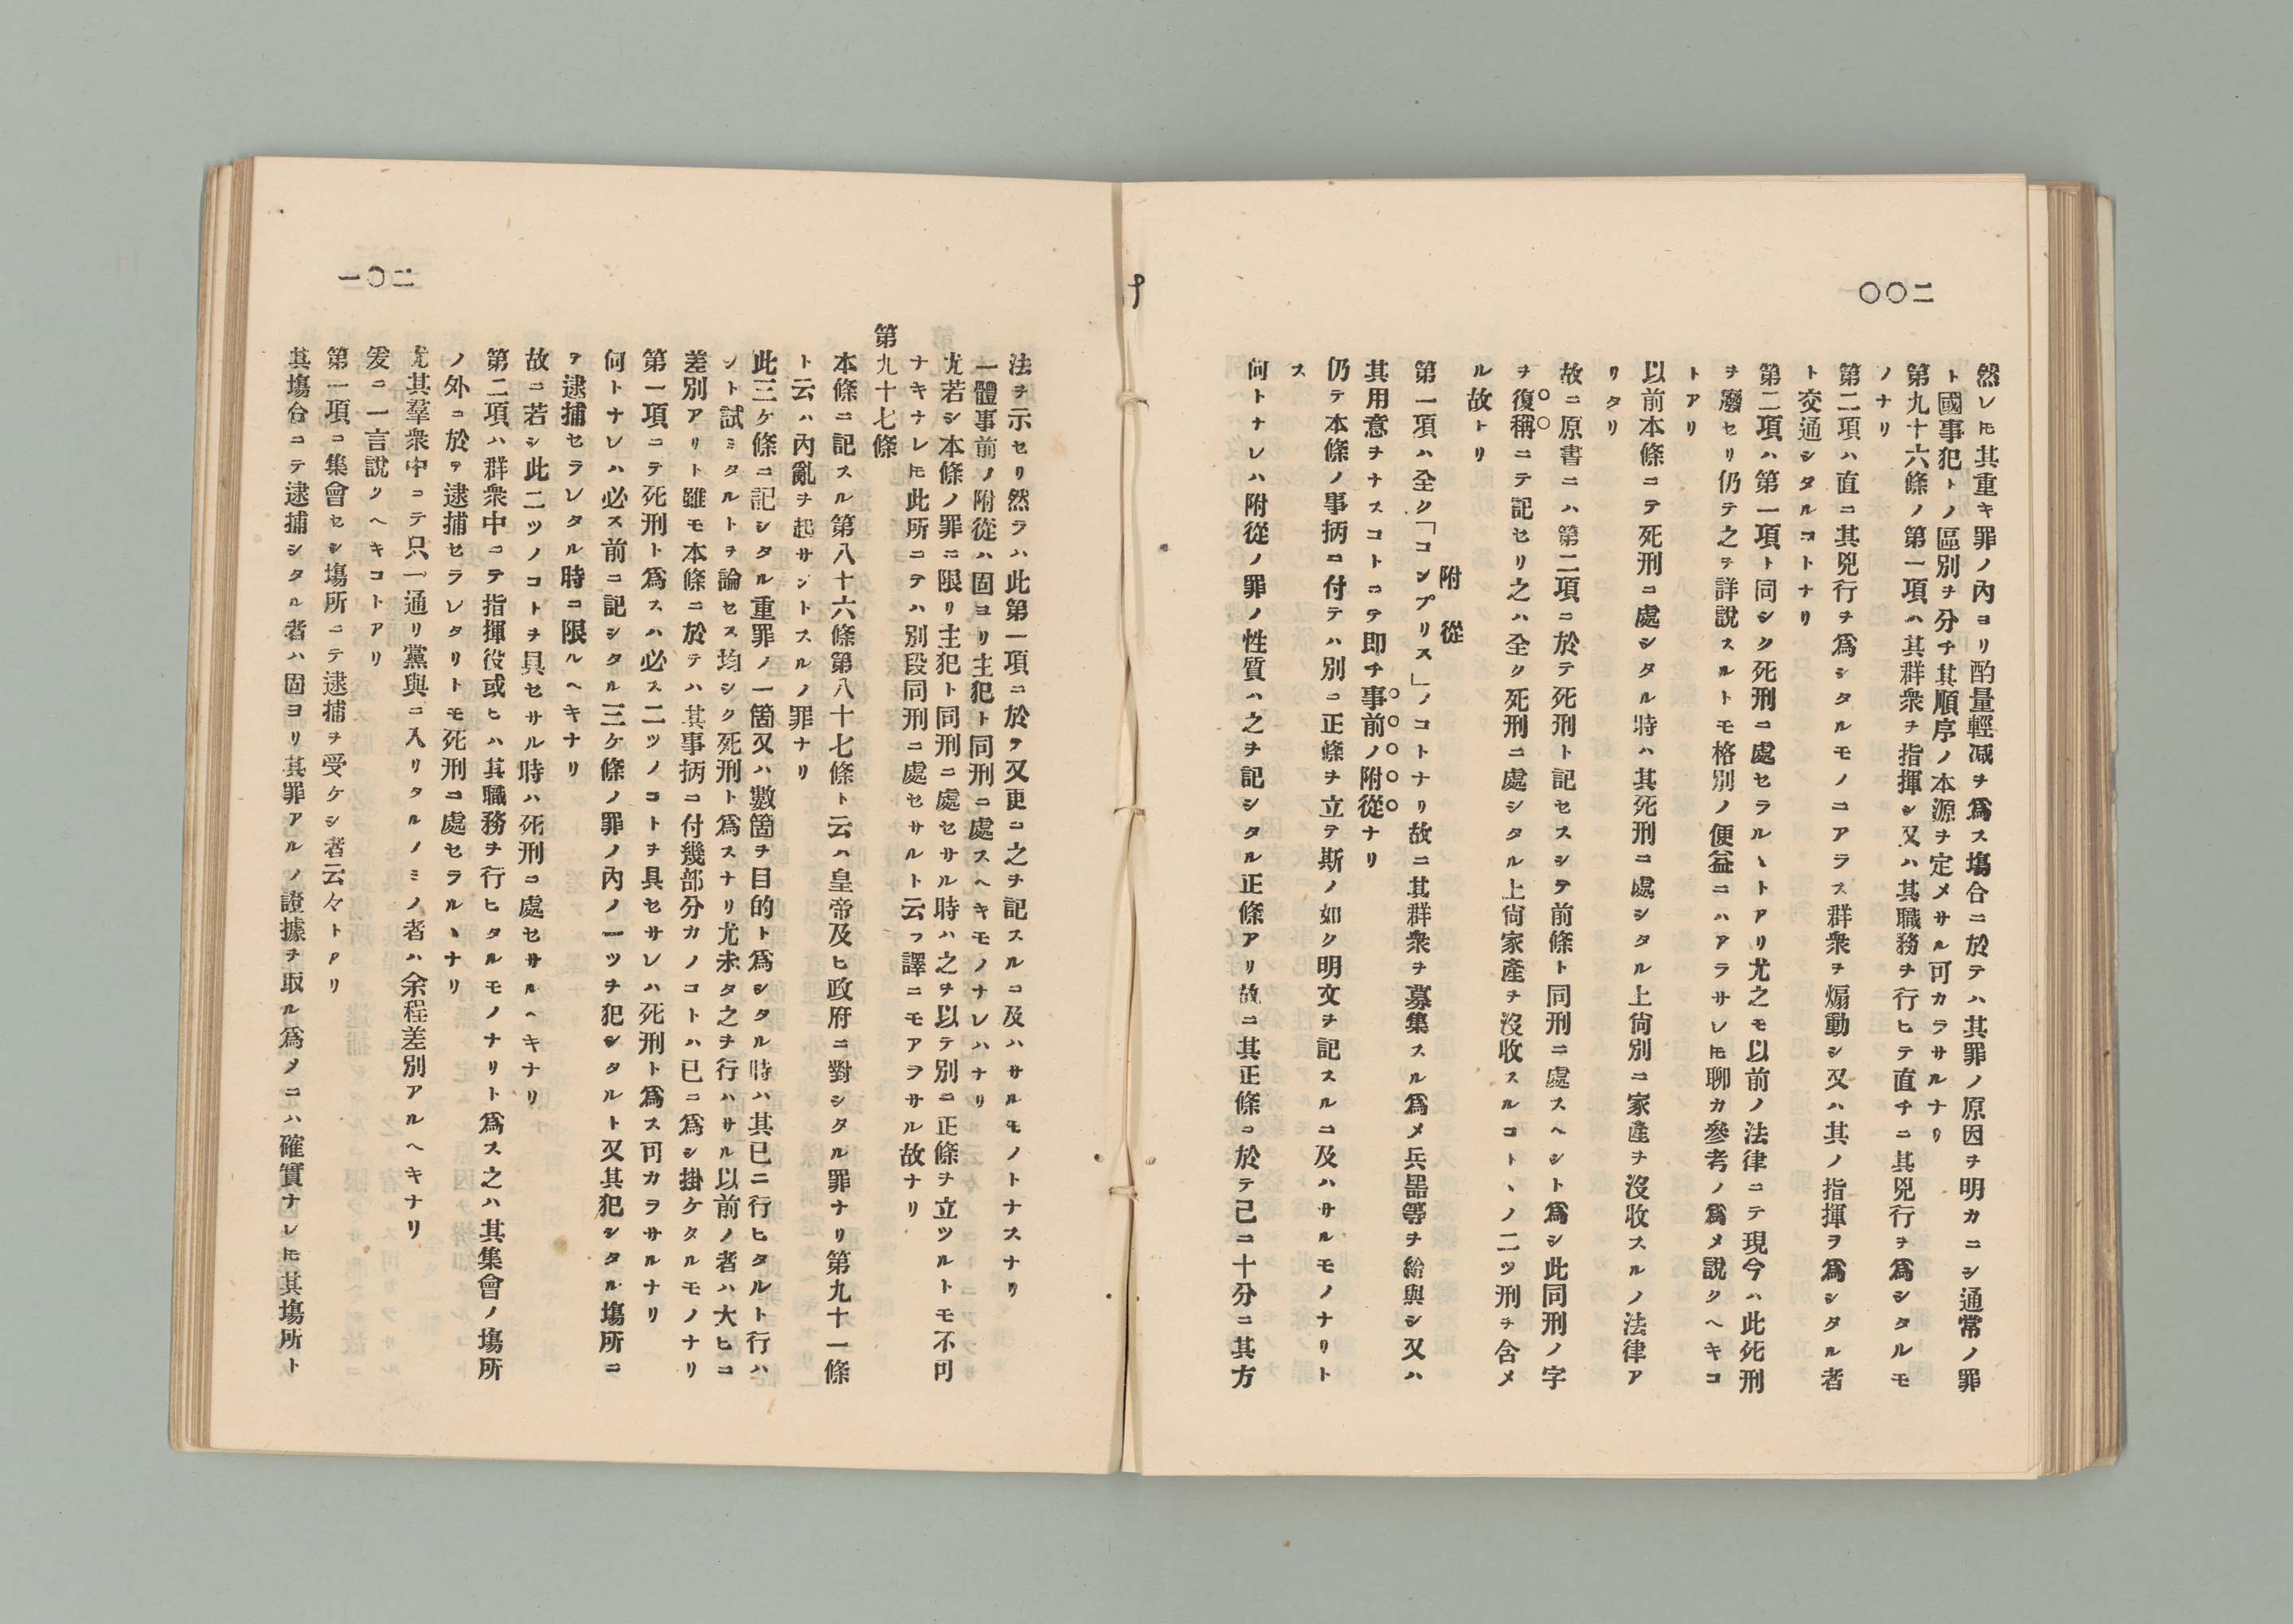 二〇〇
然レ𪜈其重キ罪ノ內ヨリ酌量輕减ヲ爲ス塲合ニ於テハ其罪ノ原因ヲ明カニシ通常ノ罪
ト國事犯トノ區別ヲ分チ其順序ノ本源ヲ定メサル可カラサルナリ
第九十六條ノ第一項ハ其群衆ヲ指揮シ又ハ其職務ヲ行ヒテ直チニ其兇行ヲ爲シタルモ
ノナリ
第二項ハ直ニ其兇行ヲ爲シタルモノニアラス群衆ヲ煽動シ又ハ其ノ指揮ヲ爲シタル者
ト交通シタルコトナリ
第二項ハ第一項ト同シク死刑ニ處セラルヽトアリ尤之モ以前ノ法律ニテ現今ハ此死刑
ヲ廢セリ仍テ之ヲ詳說スルトモ格別ノ便益ニハアラサレ𪜈聊カ參考ノ爲メ說クヘキコ
トアリ
以前本條ニテ死刑ニ處シタル時ハ其死刑ニ處シタル上尙別ニ家產ヲ沒收スルノ法律ア
リタリ
故ニ原書ニハ第二項ニ於テ死刑ト記セスシテ前條ト同刑ニ處スヘシト爲シ此同刑ノ字
ヲ復稱ニテ記セリ之ハ全ク死刑ニ處シタル上尙家產ヲ沒收スルコトヽノ二ツ刑ヲ含メ
ル故トリ
附從
第一項ハ全ク「コンプリス」ノコトナリ故ニ其群衆ヲ募集スル爲メ兵器等ヲ給與シ又ハ
其用意ヲナスコトニテ即チ事前ノ附從ナリ
仍テ本條ノ事柄ニ付テハ別ニ正條ヲ立テ斯ノ如ク明文ヲ記スルニ及ハサルモノナリト
ス
何トナレハ附從ノ罪ノ性質ハ之ヲ記シタル正條アリ故ニ其正條ニ於テ已ニ十分ニ其方
二〇一
法ヲ示セリ然ラハ此第一項ニ於テ又更ニ之ヲ記スルニ及ハサルモノトナスナリ
一體事前ノ附從ハ固ヨリ主犯ト同刑ニ處スヘキモノナレハナリ
尤若シ本條ノ罪ニ限リ主犯ト同刑ニ處セサル時ハ之ヲ以テ別ニ正條ヲ立ツルトモ不可
ナキナレ𪜈此所ニテハ別段同刑ニ處セサルト云フ譯ニモアラサル故ナリ
第九十七條
本條ニ記スル第八十六條第八十七條ト云ハ皇帝及ヒ政府ニ對シタル罪ナリ第九十一條
ト云ハ內亂ヲ起サントスルノ罪ナリ
此三ケ條ニ記シタル重罪ノ一箇又ハ數箇ヲ目的ト爲シタル時ハ其已ニ行ヒタルト行ハ
ント試ミタルトヲ論セス均シク死刑ト爲スナリ尤未タ之ヲ行ハサル以前ノ者ハ大ヒニ
差別アリト雖モ本條ニ於テハ其事柄ニ付幾部分カノコトハ已ニ爲シ掛ケタルモノナリ
第一項ニテ死刑ト爲スハ必ス二ツノコトヲ具セサレハ死刑ト爲ス可カラサルナリ
何トナレハ必ス前ニ記シタル三ケ條ノ罪ノ內ノ一ツヲ犯シタルト又其犯シタル塲所ニ
テ逮捕セラレタル時ニ限ルヘキナリ
故ニ若シ此二ツノコトヲ具セサル時ハ死刑ニ處セサルヘキナリ
第二項ハ群衆中ニテ指揮役或ヒハ其職務ヲ行ヒタルモノナリト爲ス之ハ其集會ノ塲所
ノ外ニ於テ逮捕セラレタリトモ死刑ニ處セラルヽナリ
尤其羣衆中ニテ只一通リ黨與ニ入リタルノミノ者ハ余程差別アルヘキナリ
爰ニ一言說クヘキコトアリ
第一項ニ集會セシ塲所ニテ逮捕ヲ受ケシ者云々トアリ
其塲合ニテ逮捕シタル者ハ固ヨリ其罪アルノ證據ヲ取ル爲メニハ確實ナレ𪜈其塲所ト